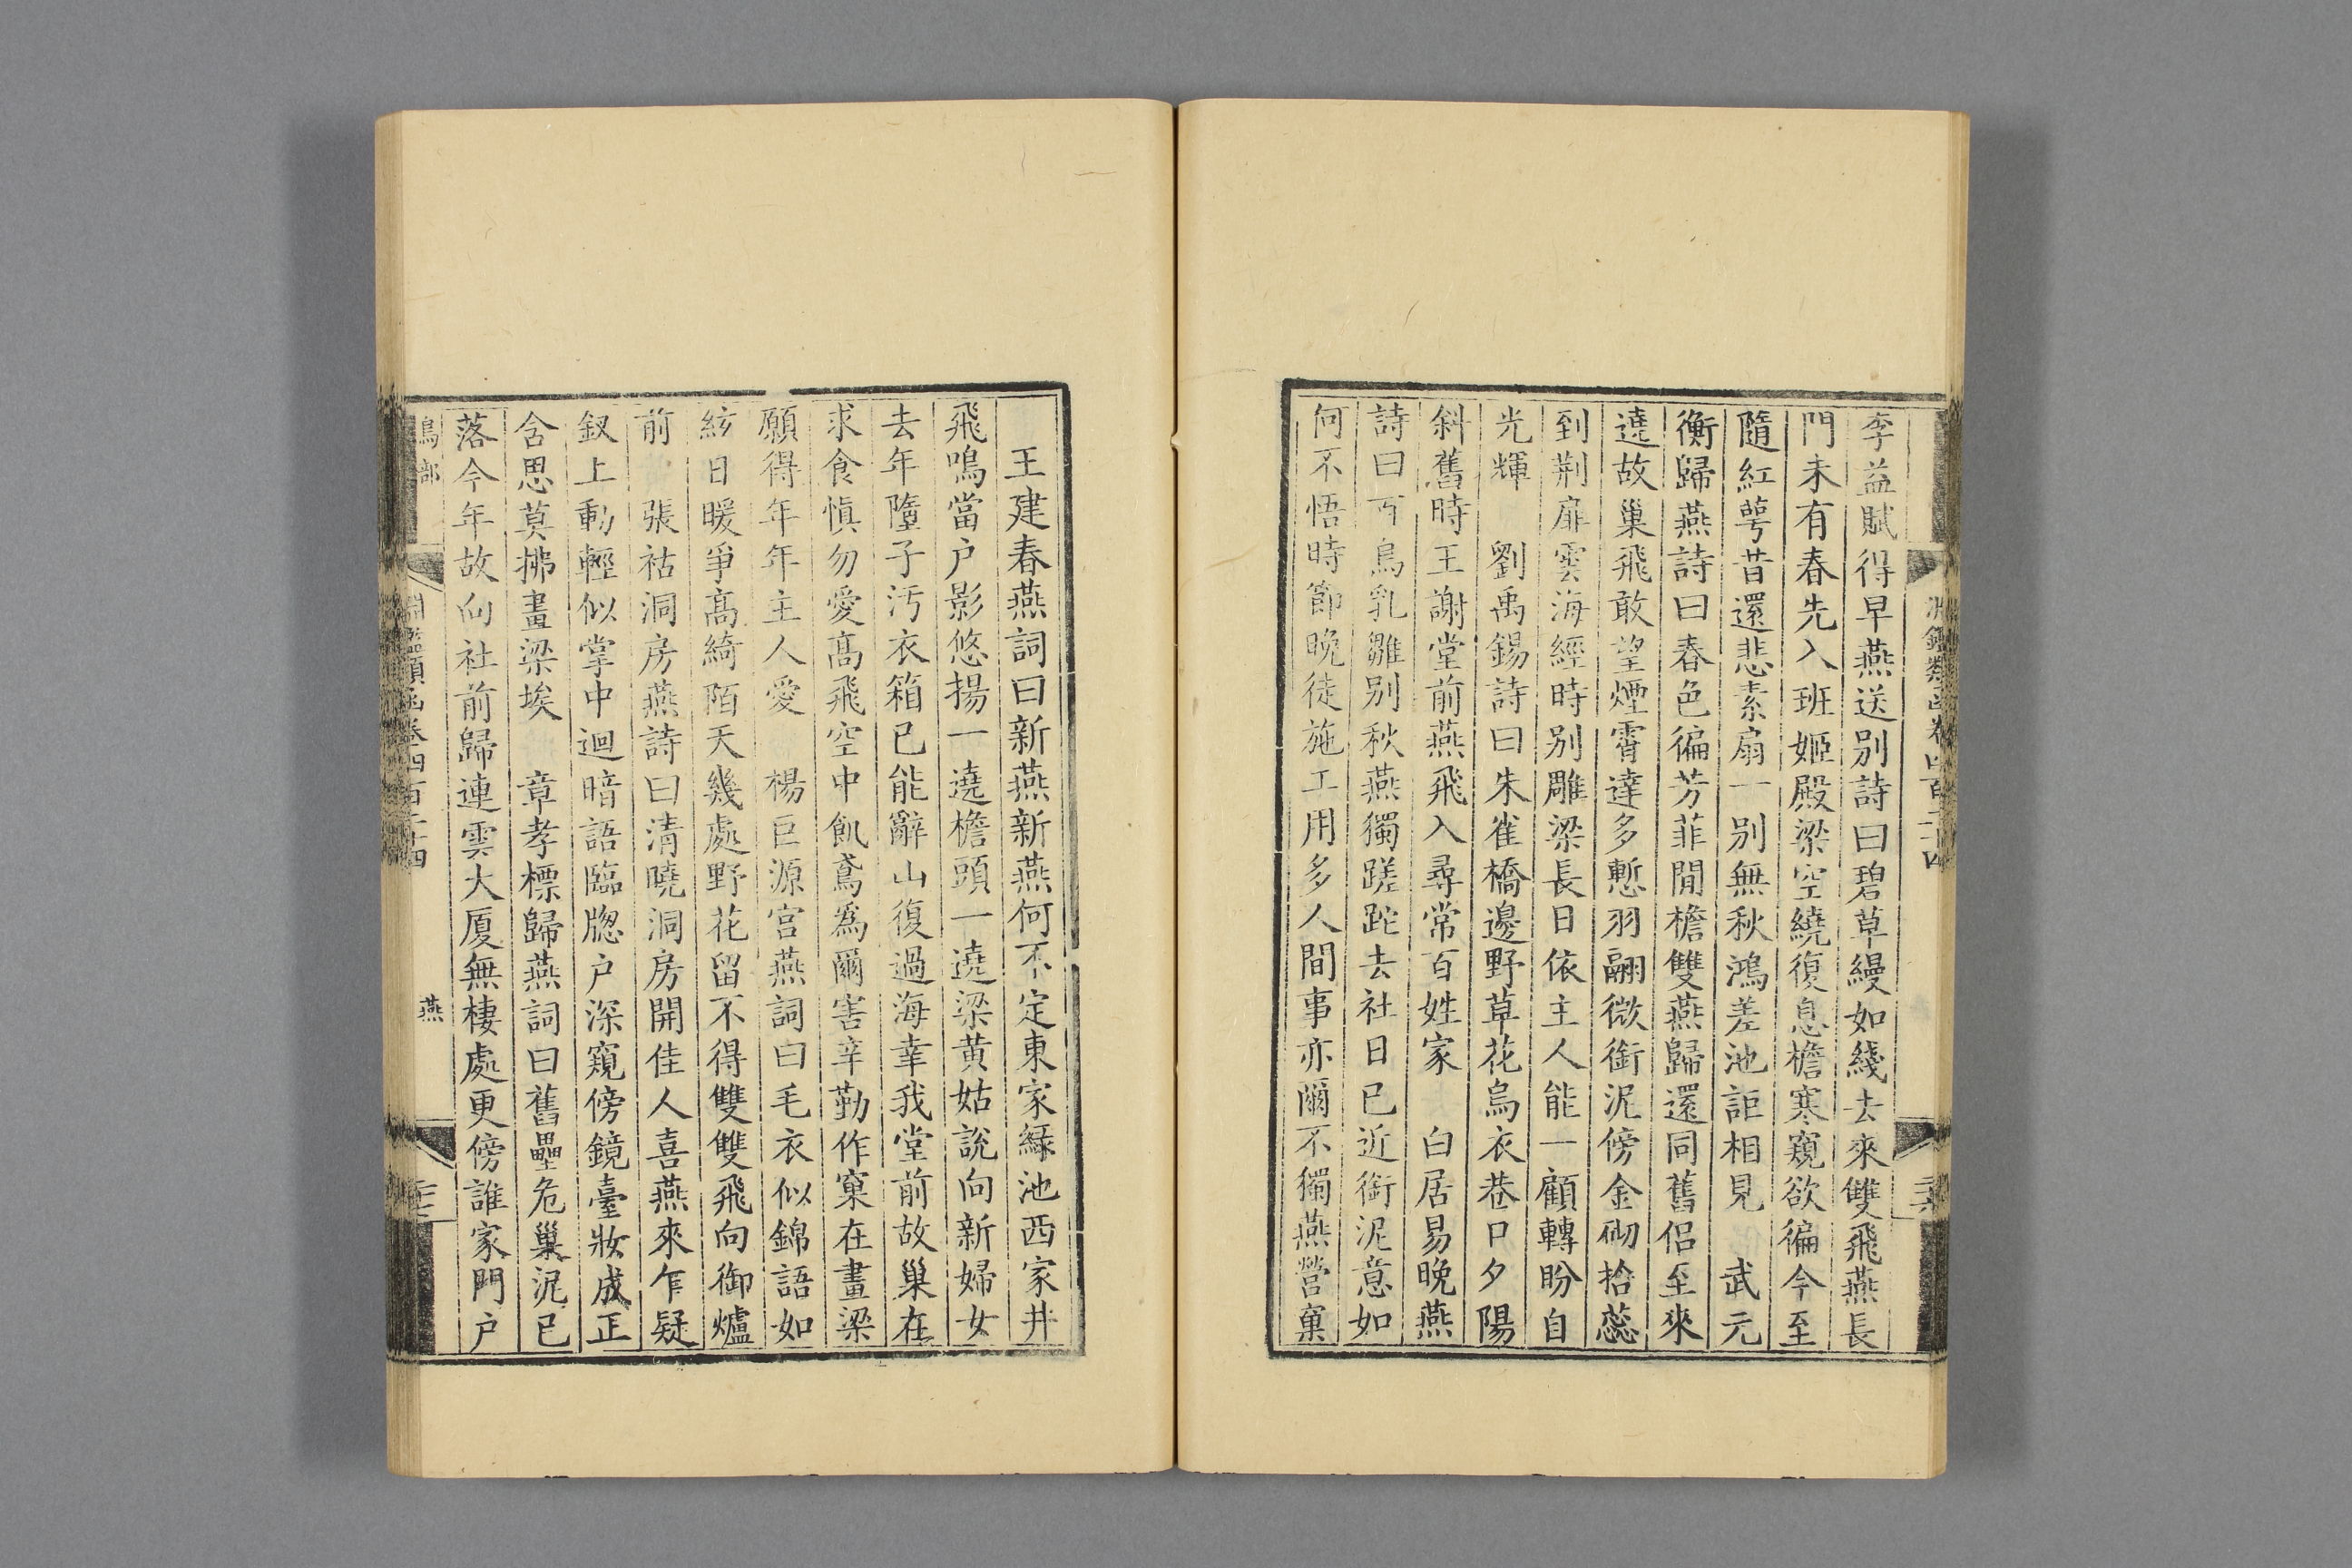 淵鑑類函卷四百二十四
李益賦得早燕送別詩曰碧草縵如綫去來雙飛燕長
門未有春先入班姬殿梁空繞復息檐寒窺欲徧今至
隨紅萼昔還悲素扇一別無秋鴻差池詎相見　武元
衡歸燕詩曰春色徧芳菲閒檐雙燕歸還同舊侶至來
遶故巢飛敢望煙霄達多慙羽翮微銜泥傍金砌拾蕊
到荆扉雲海經時別雕梁長日依主人能一顧轉盼自
光輝　劉禹錫詩曰朱雀橋邊野草花烏衣巷口夕陽
斜舊時王謝堂前燕飛入尋常百姓家　白居易晚燕
詩曰百鳥乳雛別秋燕獨蹉跎去社日已近銜泥意如
何不悟時節晚徒施工用多人間事亦爾不獨燕營窠
王建春燕詞曰新燕新燕何不定東家綠池西家井
飛鳴當户影悠揚一遶檐頭一遶梁黄姑說向新婦女
去年墮子汚衣箱已能辭山復過海幸我堂前故巢在
求食慎勿愛髙飛空中飢鳶爲爾害辛勤作窠在畫梁
願得年年主人愛　楊巨源宫燕詞曰毛衣似錦語如
絃日暖爭髙綺陌天幾處野花留不得雙雙飛向御爐
前　張祜洞房燕詩曰清曉洞房開佳人喜燕來乍疑
釵上動輕似掌中迴暗語臨牎户深窺傍鏡臺妝成正
含思莫拂畫梁埃　章孝標歸燕詞曰舊壘危巢泥已
落今年故向社前歸連雲大厦無棲處更傍誰家門户
鳥部
淵鑑類函卷四百二十四
燕